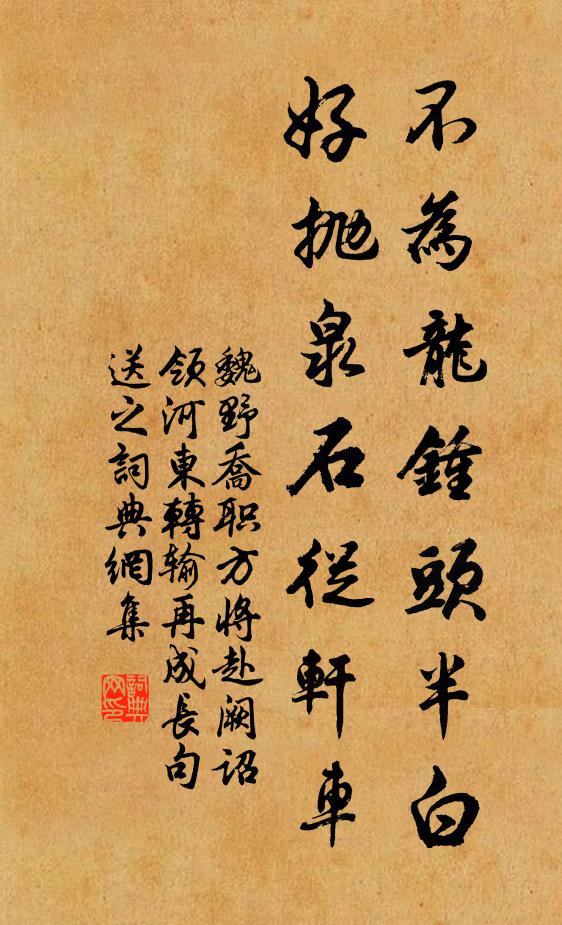 不為龍鍾頭半白
好拋泉石從軒車
魏野喬职方將赴阙诏
领河東轉输再成長句
送之詞典網集
詞典網印